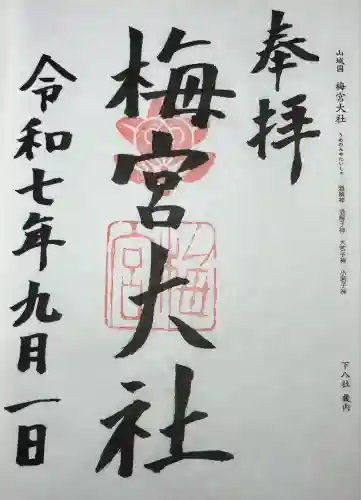 山城國　梅宮大社
うめのみやたいしゃ
酒解神　酒解子神　大若子神　小若子神
下八社　畿内
奉拝
梅宮大社
梅宮
令和七年九月一日